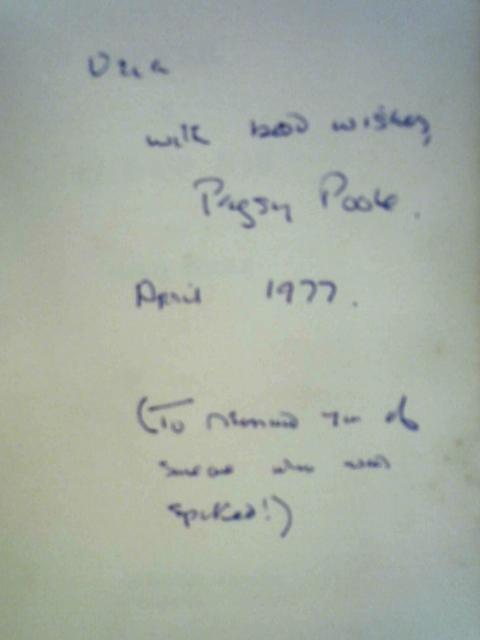 Una
with good wishes,
Peggy Poole.
April 1977.
(To remind you of
someone who was
spiked!)